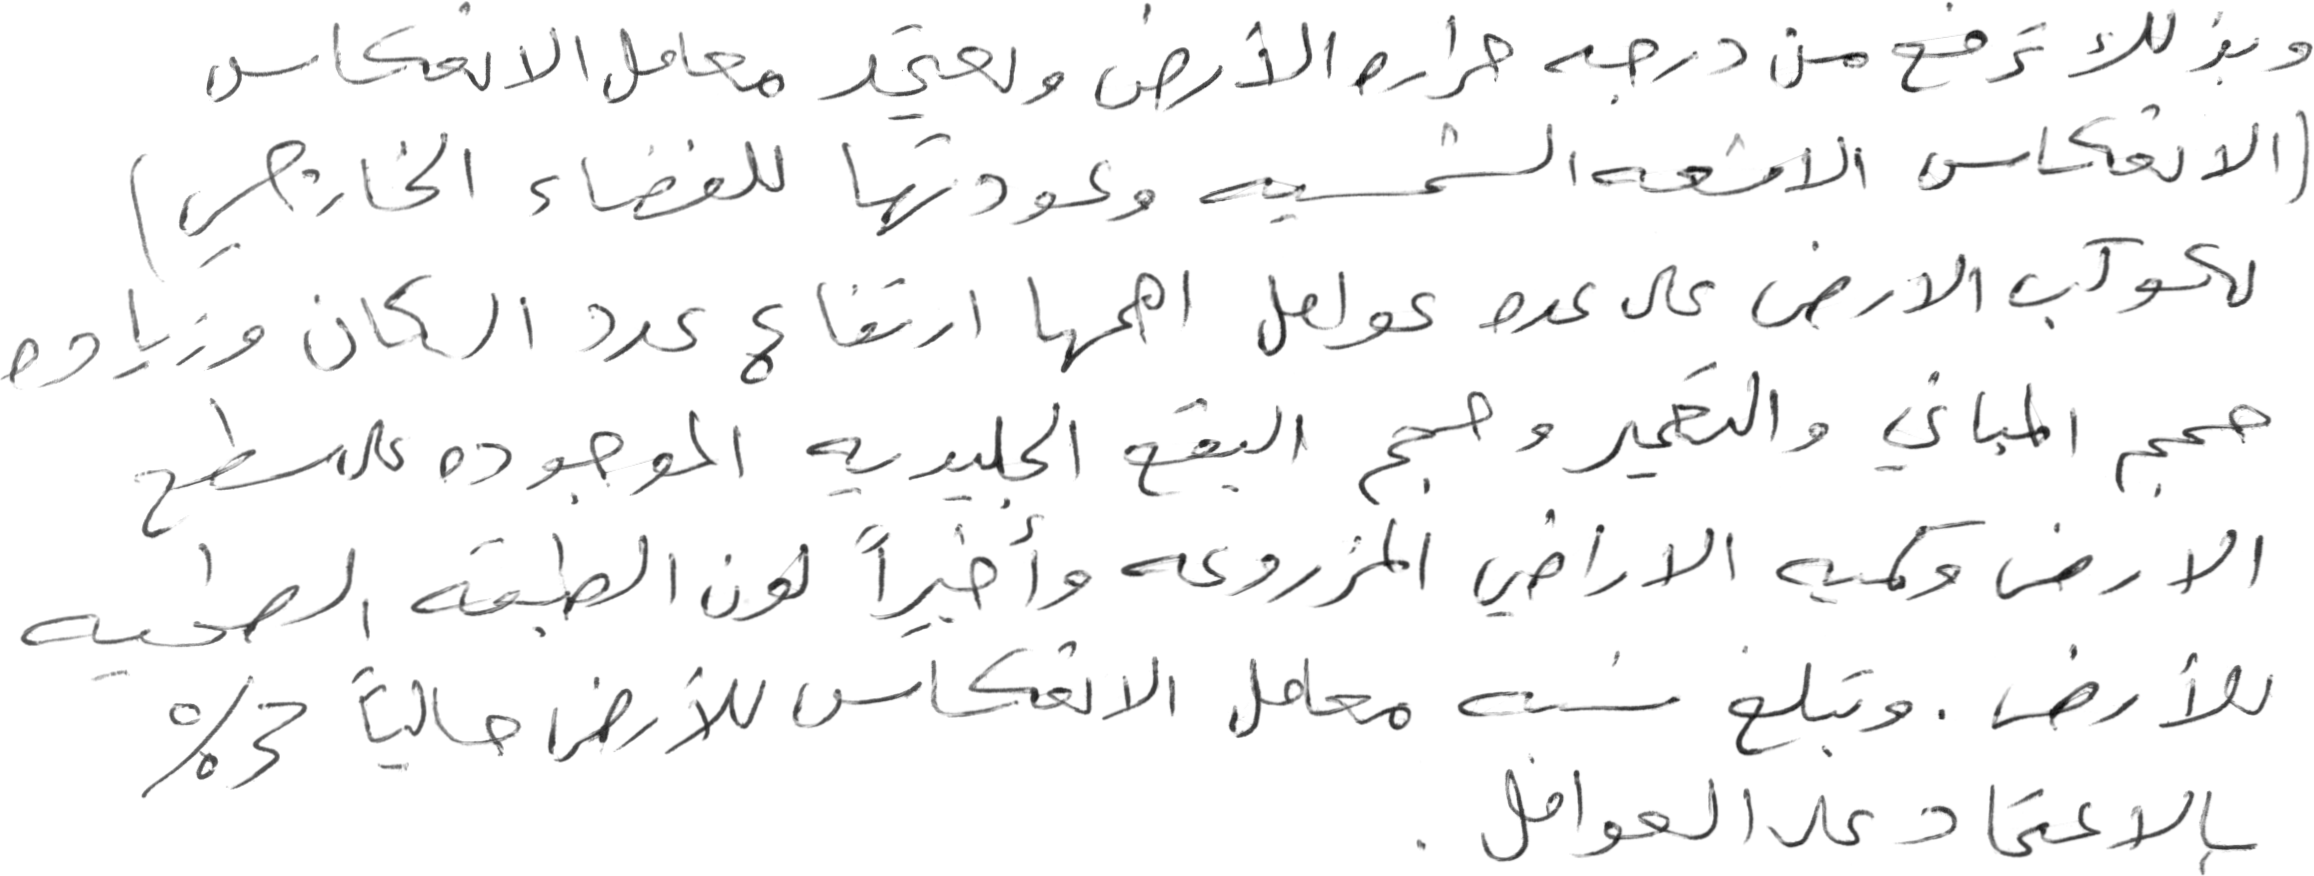 وبذلك ترفع من درجه حراره الأرض ويعتمد معامل الانعكاس
(الانعكاس الاشعه الشمسيه وعودتها للفضاء الخارجي)
لكوكب الارض على عده عوامل اهمها ارتفاع عدد السكان وزياده
حجم المباني والتعمير وحجم البقع الجليديه الموجوده على سطح
الارض وكميه الاراضي المزروعه وأخيراً لون الطبقه السطحيه
للأرض . وتبلغ نسبه معامل الانعكاس للأرض حالياً 3%
بالاعتماد على العوامل .